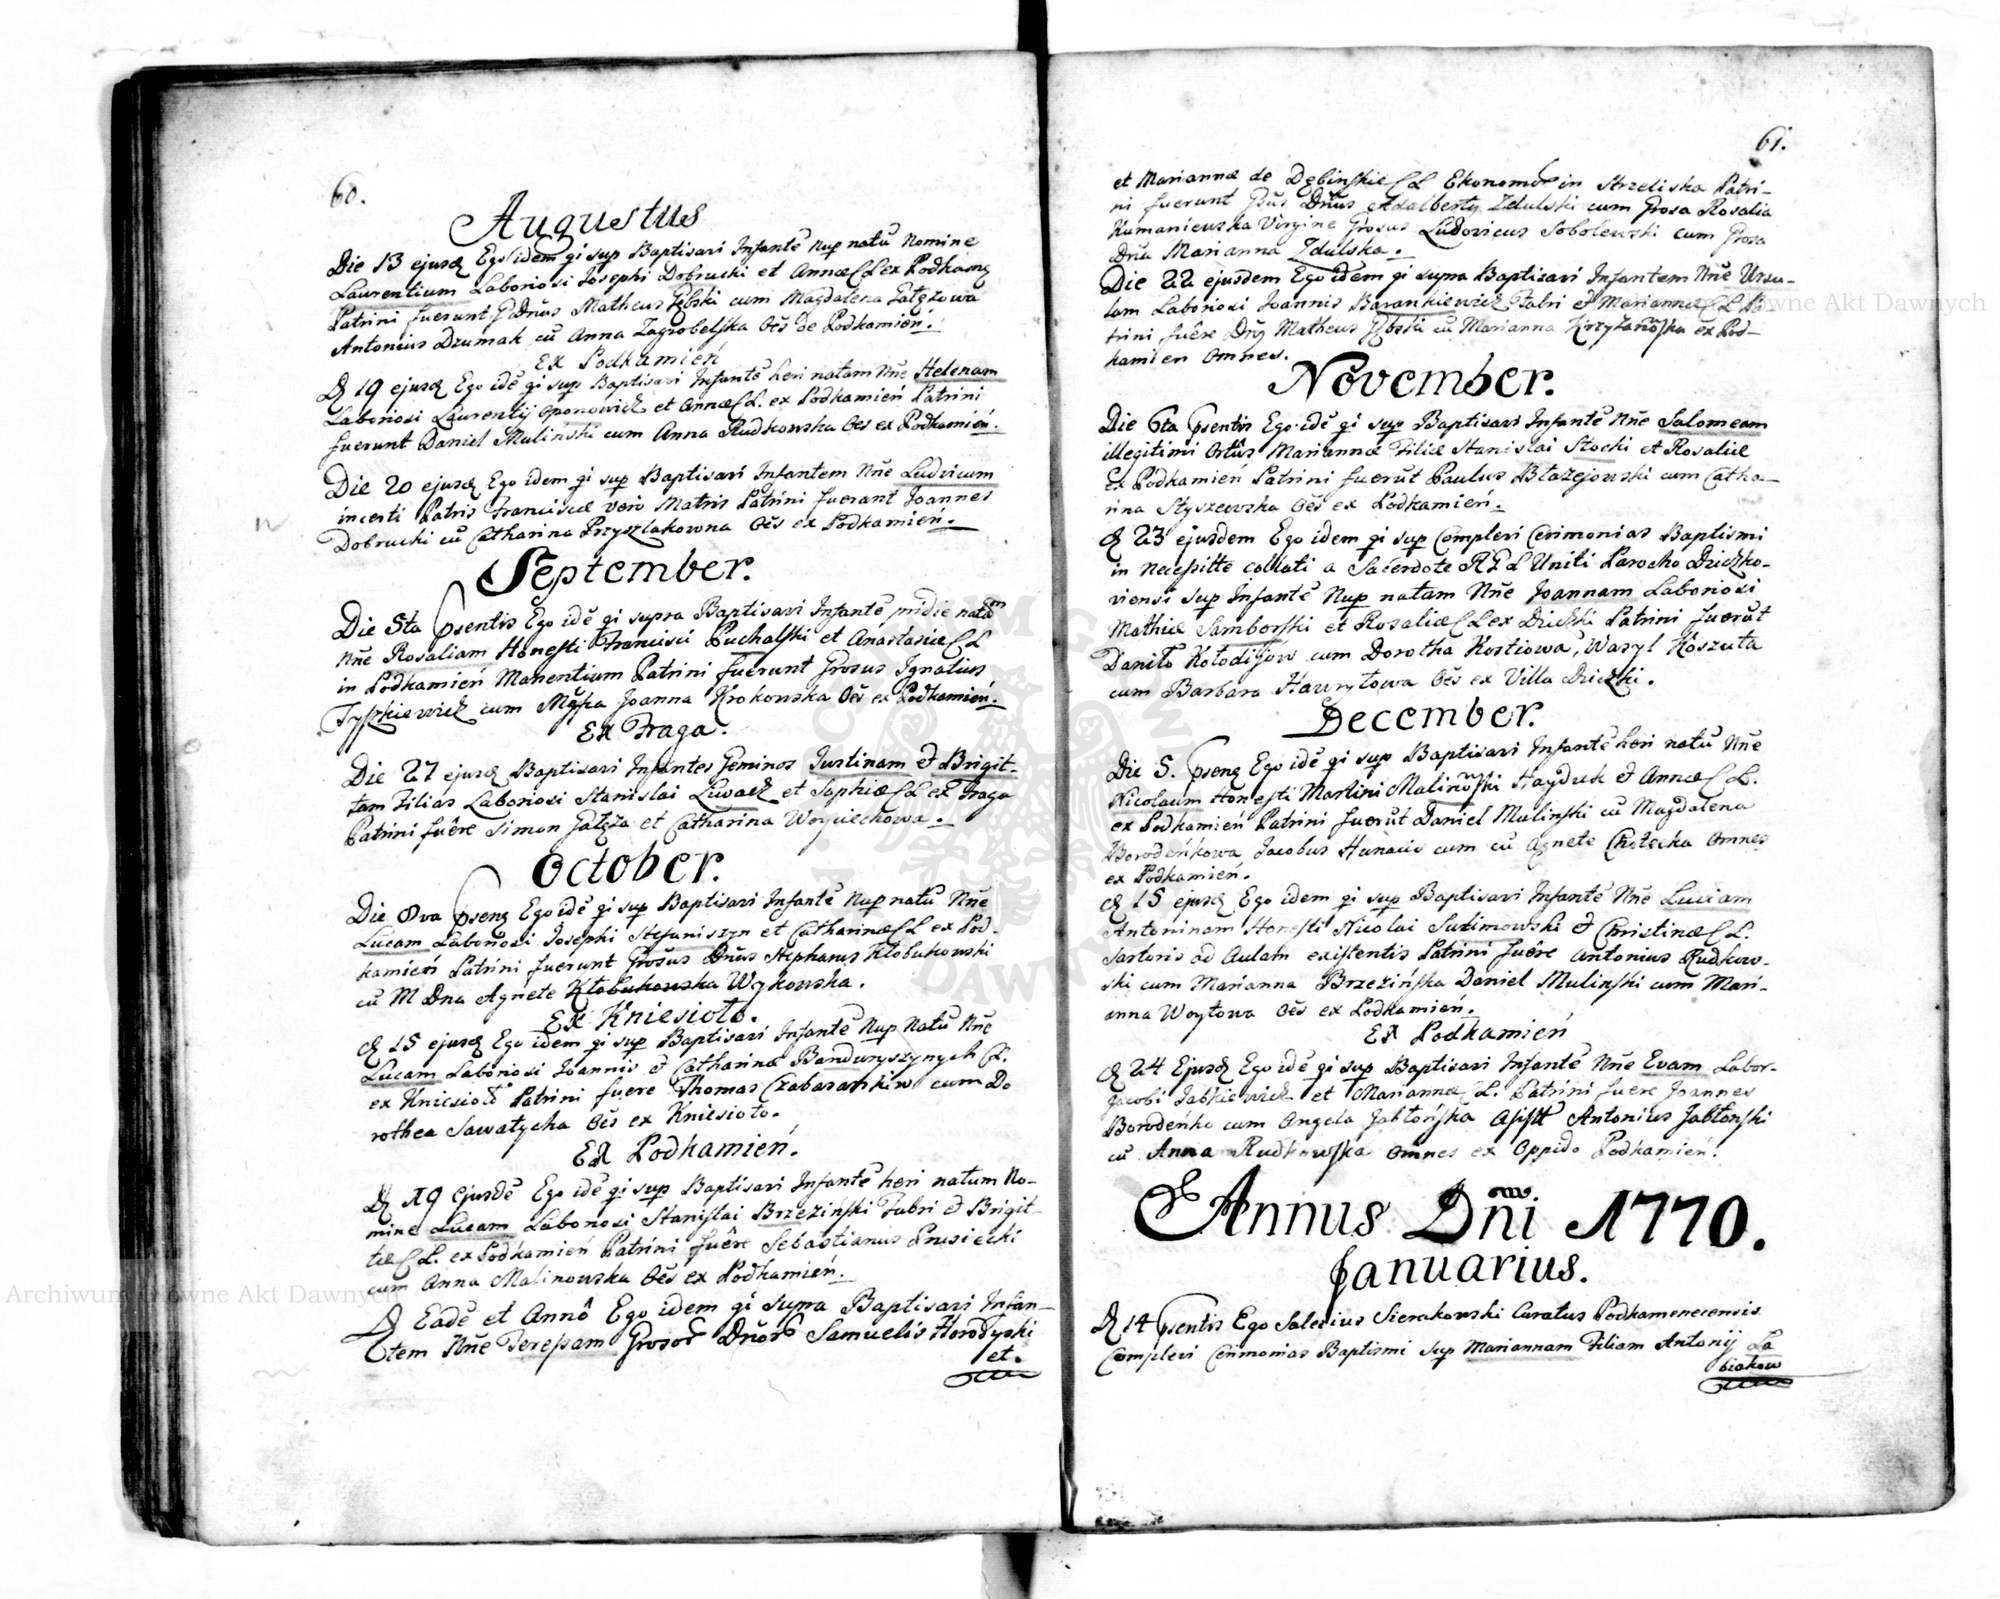 60.
Augustus
Die 13 ejusq Ego idem qi sup Baptisavi Infantē nup natū Nomine
Laurentium Laboriosi Josephi Dobrucki et Annæ C L ex Podkamą
Patrini fuerunt G Dnūs Matheus Gębski cum Magdalena Gałęzowa
Antonius Dzumak cū Anna Zagrobelska Oēs de Podkamień.
Ex Podkamień
D 19 ejusq Ego idē qi sup Baptisavi Infantē heri natam Nnē Helenam
Laboriosi Laurentij Oponowicz et Annæ C L. ex Podkamień Patrini
fuerunt Daniel Mulinski cum Anna Rudkowska Oēs ex Podkamień.
Die 20 ejusq Ego idem qi sup Baptisavi Infantem Nnē Ludvicum
incerti Patris Franciscæ vero Matris Patrini fuerunt Joannes
Dobrucki cū Catharina Przyszlakowna Oēs ex Podkamień.
September.
Die 5ta Psentis Ego idē qi supra Baptisavi Infantē pridie natam
Nnē Rosaliam Honesti Francisci Puchalski et Anastasiæ C L
in Podkamień Manentium Patrini fuerunt Grosus Ignatius
Tyszkiewicz cum Mgfca Joanna Krokowska Oēs ex Podkamień.
Ex Fraga.
Die 27 ejusq Baptisavi Infantes Geminos Justinam et Brigit-
tam Filias Laboriosi Stanislai Luvacz et Sophiæ C L ex Fraga
Patrini fuêre Simon Gałęza et Catharina Woyciechowa.
October.
Die 8va Psenq Ego idē qi sup Baptisavi Infantē Nup natū Nnē
Lucam Laboriosi Josephi Stefaniszyn et Catharinæ C L ex Pod-
kamień Patrini fuerunt Grosus Dnūs Stephanus Kłobukowski
cū M Dna Agnete Kłobukowska Wykowska.
Ex Kniesioło.
D 15 ejusq Ego idem qi sup Baptisavi Infantē Nup Natū Nnē
Lucam Laboriosi Joannis et Catharinæ Banduryszynych C L.
ex Kniesioło Patrini fuere Thomas Czabarankiw cum Do
rothea Sawałycha Oēs ex Kniesioło.
Ex Podkamień.
D 19 Ejusdē Ego idē qi sup Baptisavi Infantē heri natum No-
mine Lucam Laboriosi Stanislai Brzezinski Fabri et Brigit-
tæ C L. ex Podkamień Patrini fuêre Sebastianus Prusiecki
cum Anna Malinowska Oēs ex Podkamień.
D Eadē et Annô Ego idem qi supra Baptisavi Infan-
tem Nnē Teressam Grosor Dnōr Samuelis Horodyski
et.
61.
et Mariannæ de Dębinskie C L Ekonomor in Strzeliska Patri-
ni fuerunt Gsus Dnūs Adalbertg Zdulski cum Grosa Rosalia
Kumaniewska Virgine Grosus Ludovicus Sobolewski cum Grosa
Dnā Marianna Zdulska.
Die 22 ejusdem Ego idem qi supra Baptisavi Infantem Nnē Ursu-
lam Laboriosi Joannis Barankiewicz Fabri et Mariannæ C L Pa-
trini fuêre Dng Matheus Gębski cū Marianna Krzyżańoska ex Pod-
kamien Omnes.
November.
Die 6ta Psentis Ego idē qi sup Baptisavi Infantē Nnē Salomeam
illegitimi Ortûs Mariannæ Filiæ Stanislai Stocki et Rosaliæ
Ex Podkamień Patrini fuerūt Paulus Błazejowski cum Catha-
rina Styszewska Oēs ex Podkamień.
D 23 ejusdem Ego idem qi sup Complevi Cerimonias Baptismi
in necessitte collati a Sacerdote R G L Uniti Parocho Dziczko-
viensi sup Infantē Nup natam Nnē Joannam Laboriosi
Mathiæ Samborski et Rosaliæ C L ex Dziczki Patrini fuerūt
Daniło Kołodijow cum Dorotha Kostiowa, Wasyl Koszuta
cum Barbara Hawryłowa Oēs ex Villa Dziczki.
December.
Die 5. Psenq Ego idē qi sup Baptisavi Infantē heri natū Nnē
Nicolaum Honesti Martini Malinōski Hayduk et Annæ C L.
ex Podkamień Patrini fuerūt Daniel Mulinski cū Magdalena
Borodeńkowa, Jacobus Hunacie cum cū Agnete Chotecka Omnes
ex Podkamień.
D 15 ejusq Ego idem qi sup Baptisavi Infantē Nnē Luciam
Antoninam Honesti Nicolai Sutimowski et Christinæ C L.
Sartoris ad Aulam existentis Patrini fuêre Antonius Rudkow-
ski cum Marianna Brzezińska Daniel Mulinski cum Mari-
anna Woytowa Oēs ex Podkamień.
Ex Podkamień
D 24 Ejusq Ego idē qi sup Baptisavi Infantē Nnē Evam Labor-
Jacobi Jabkiewicz et Mariannæ C L. Patrini fuere Joannes
Borodeńko cum Angela Jabłońska Assstt Antonius Jabłonski
cū Anna Rudkowska Omnes ex Oppido Podkamień.
Annus Dñi 1770.
Januarius.
D 14 Psentis Ego Salesius Sierakowski Curatus Podkamenecensis
Complevi Cerimonias Baptismi sup Mariannam Filiam Antonij La
biakow
Archiwum Główne Akt Dawnych